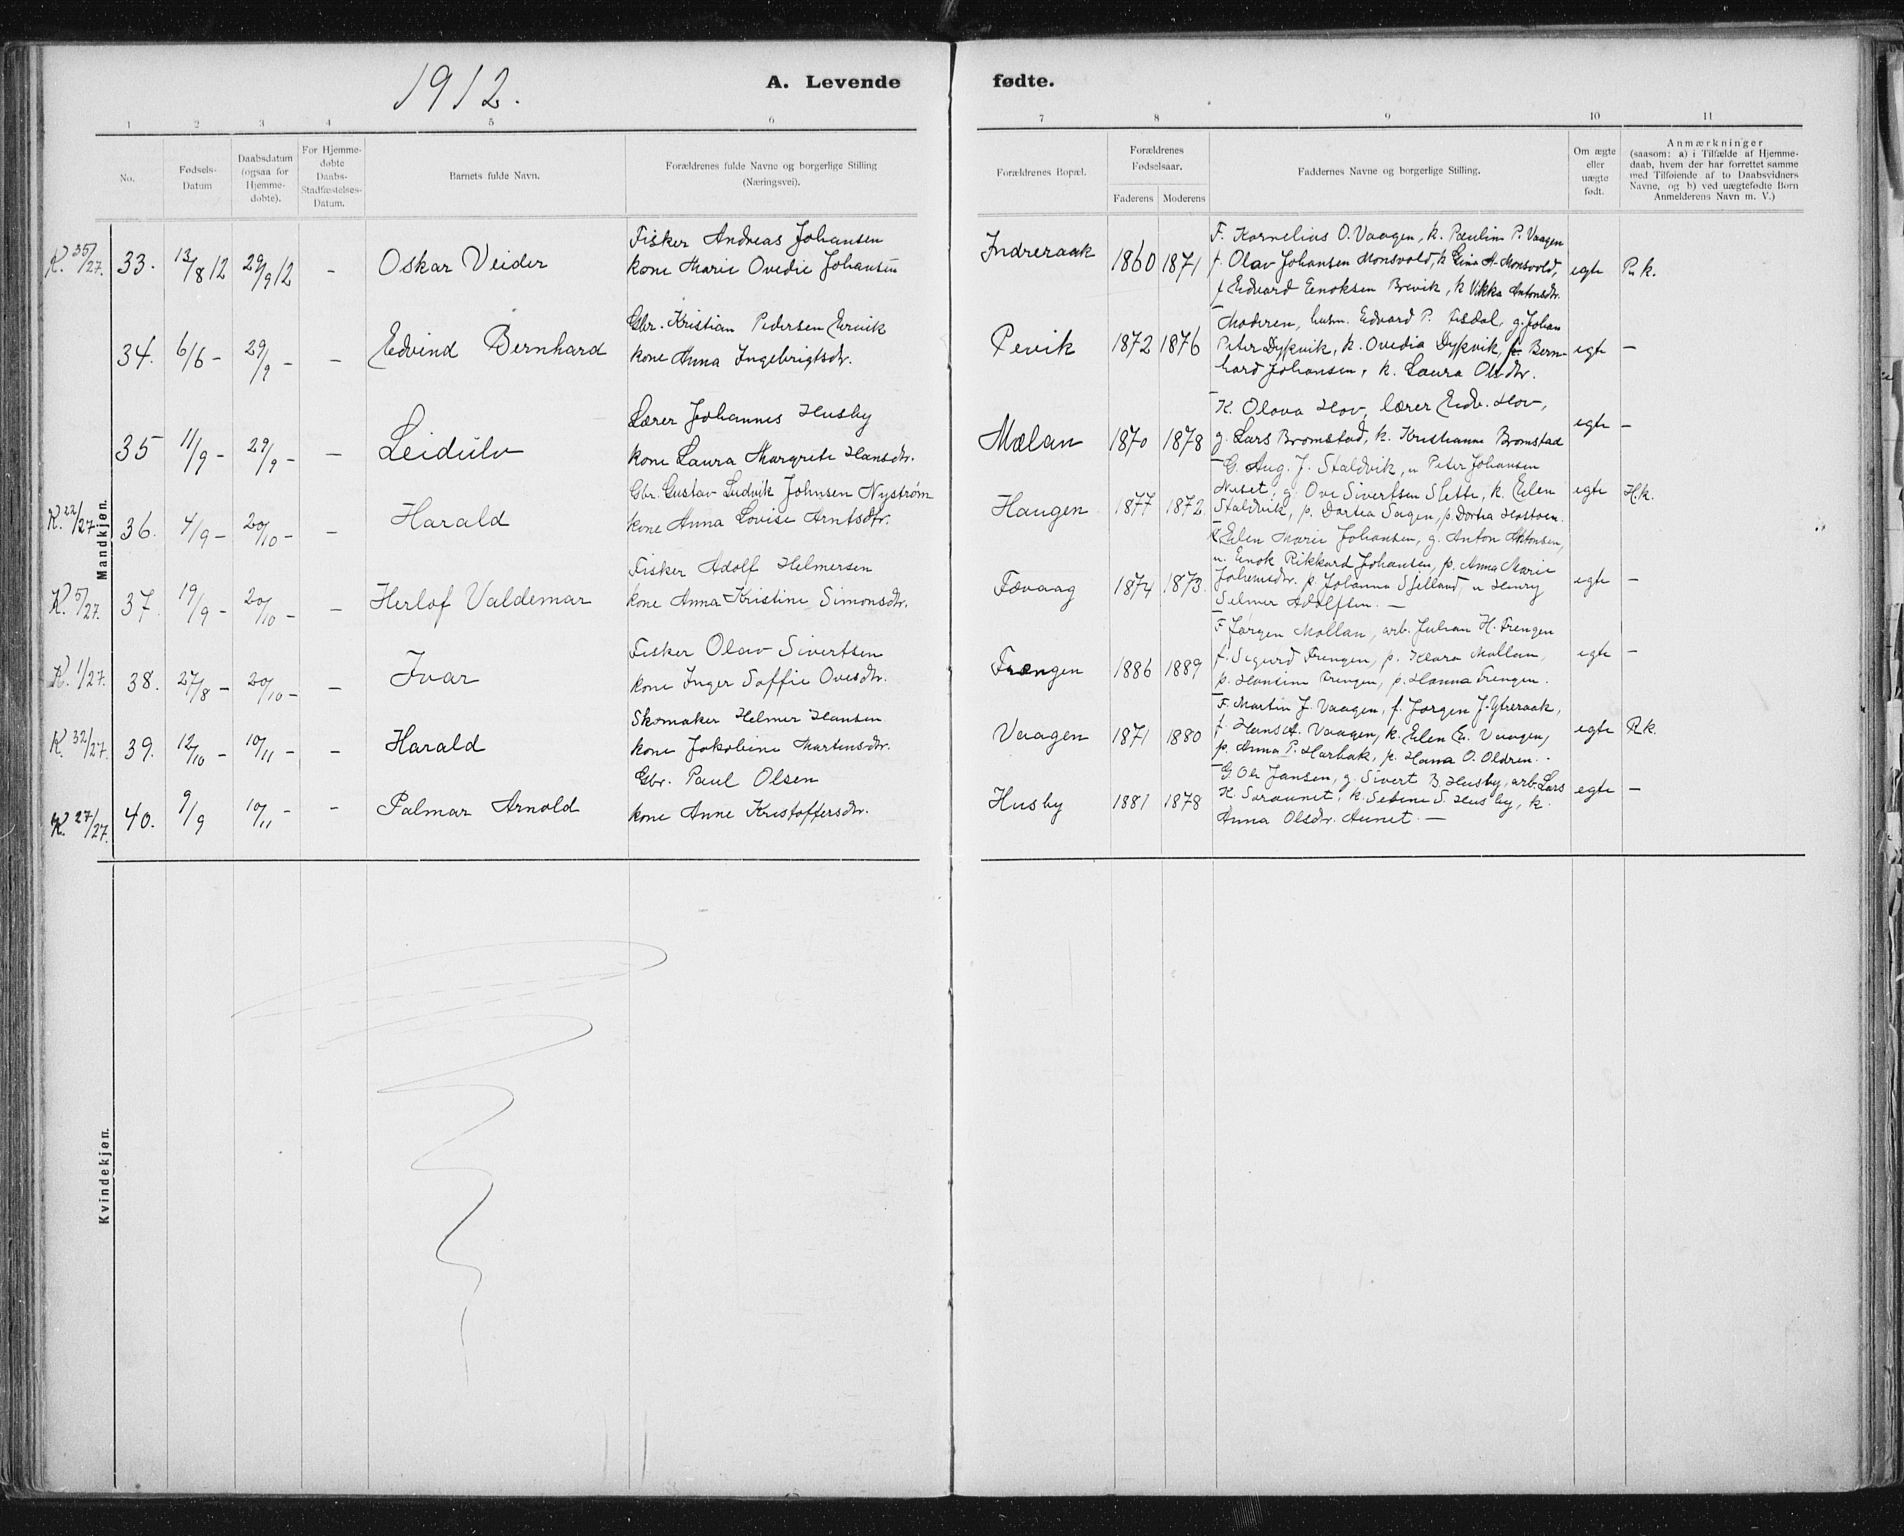 1912.
A. Levende fødte.
1 2 3 4 5 6 7 8 9 10 11
No.
Fødsels-
Datum
Daabsdatum
(ogsaa for
Hjemme-
døbte).
For Hjemme-
døbte
Daabs-
Stadfæstelses-
Datum.
Barnets fulde Navn.
Forældrenes fulde Navne og borgerlige Stilling
(Næringsvei).
Forældrenes Bopæl.
Forældrenes
Fødselsaar.
Faderens Moderens
Faddernes Navne og borgerlige Stilling.
Om ægte
eller
uægte
født.
Anmærkninger
(saasom: a) i Tilfælde af Hjemme-
daab, hvem der har forrettet samme
med Tilføiende af to Daabsvidners
Navne, og b) ved uægtefødte Børn
Anmelderens Navn m. V.)
Mandkjøn.
K. 35/27. 33. 13/8 12 29/9 12 – Oskar Veider
Fisker Andreas Johansen
kone Marie Ovedie Johansen
Indreraak 1860 1871
F. Kornelius O. Vaagen, k. Pauline P. Vaagen
f. Olav Johansen Monsvold, k Gina A. Monsvold,
f Edvard Enoksen Brevik, k Vikka Antonsdtr.
egte R k.
34. 6/6 – 29/9 – – Edvind Bernhard
Gbr. Kristian Pedersen Ervik
kone Anna Ingebrigtsdtr.
Pevik 1872 1876
Moderen, husm. Edvard P. Fisdal, g. Johan
Peter Dypvik, k. Ovedia Dypvik, Bern-
hard Johansen, k. Laura Olsdtr.
egte –
35 11/9 – 29/9 – – Leidulv
Lærer Johannes Husby
kone Laura Margrete Hansdtr.
Mælan 1870 1878
K. Olava Hov, lærer Edv. Hov,
g. Lars Bromstad, k. Kristianne Bromstad
egte –
K. 22/27. 36. 4/9 – 20/10 – – Harald
Gbr. Gustav Ludvik Johnsen Nystrøm
kone Anna Lovise Arntsdtr.
Haugen 1877 1872
G. Aug. J. Staldvik, u Peter Johansen
Neset, g. Ove Sivertsen Slette, k. Elen
Staldvik, p. Dortea Sagen, p. Dortea
egte H.k.
K. 5/27. 37. 19/9 – 20/10 – – Herlof Valdemar
Fisker Adolf Helmersen
kone Anna Kristine Simonsdtr.
Fævaag 1874 1873.
Elen Marie Johansen, g. Anton Antonsen,
u. Enok Rikkard Johansen, p. Anna Marie
p. Johanna u Henry
Selmer Adolfsen. –
egte –
K. 1/27. 38. 27/8 – 20/10 – – Ivar
Fisker Olav Sivertsen
kone Inger Soffie Ovesdtr.
Frængen 1886 1889
F Jørgen Mollan, arb. Julian H. Frengen
f. Sigurd Frengen, p. Klara Mollan,
p. Hansine Frengen, p. Hanna Frengen.
egte –
K. 32/27. 39. 12/10 – 10/11 – – Harald
Skomaker Helmer Hansen
kone Jakobine Martensdtr.
Vaagen 1871 1880
F. Martin J. Vaagen, f. Jørgen J. Ytreraak,
f. Hans A. Vaagen, k. Elen E. Vaagen,
p. Anna P. Harbak, p. Hana O. Oldren.
egte R.k.
K. 27/27. 40. 9/9 10/11 – – Palmar Arnold
Gbr. Paul Olsen
kone Anne Kristoffersdtr.
Husby 1881 1878
G. Ole Jansen, g. Sivert B. Husby, arb. Lars
H. Soraunet, k. Setine S. Husby, k.
Anna Olsdtr. Aunet. –
egte –
Kvindekjøn.